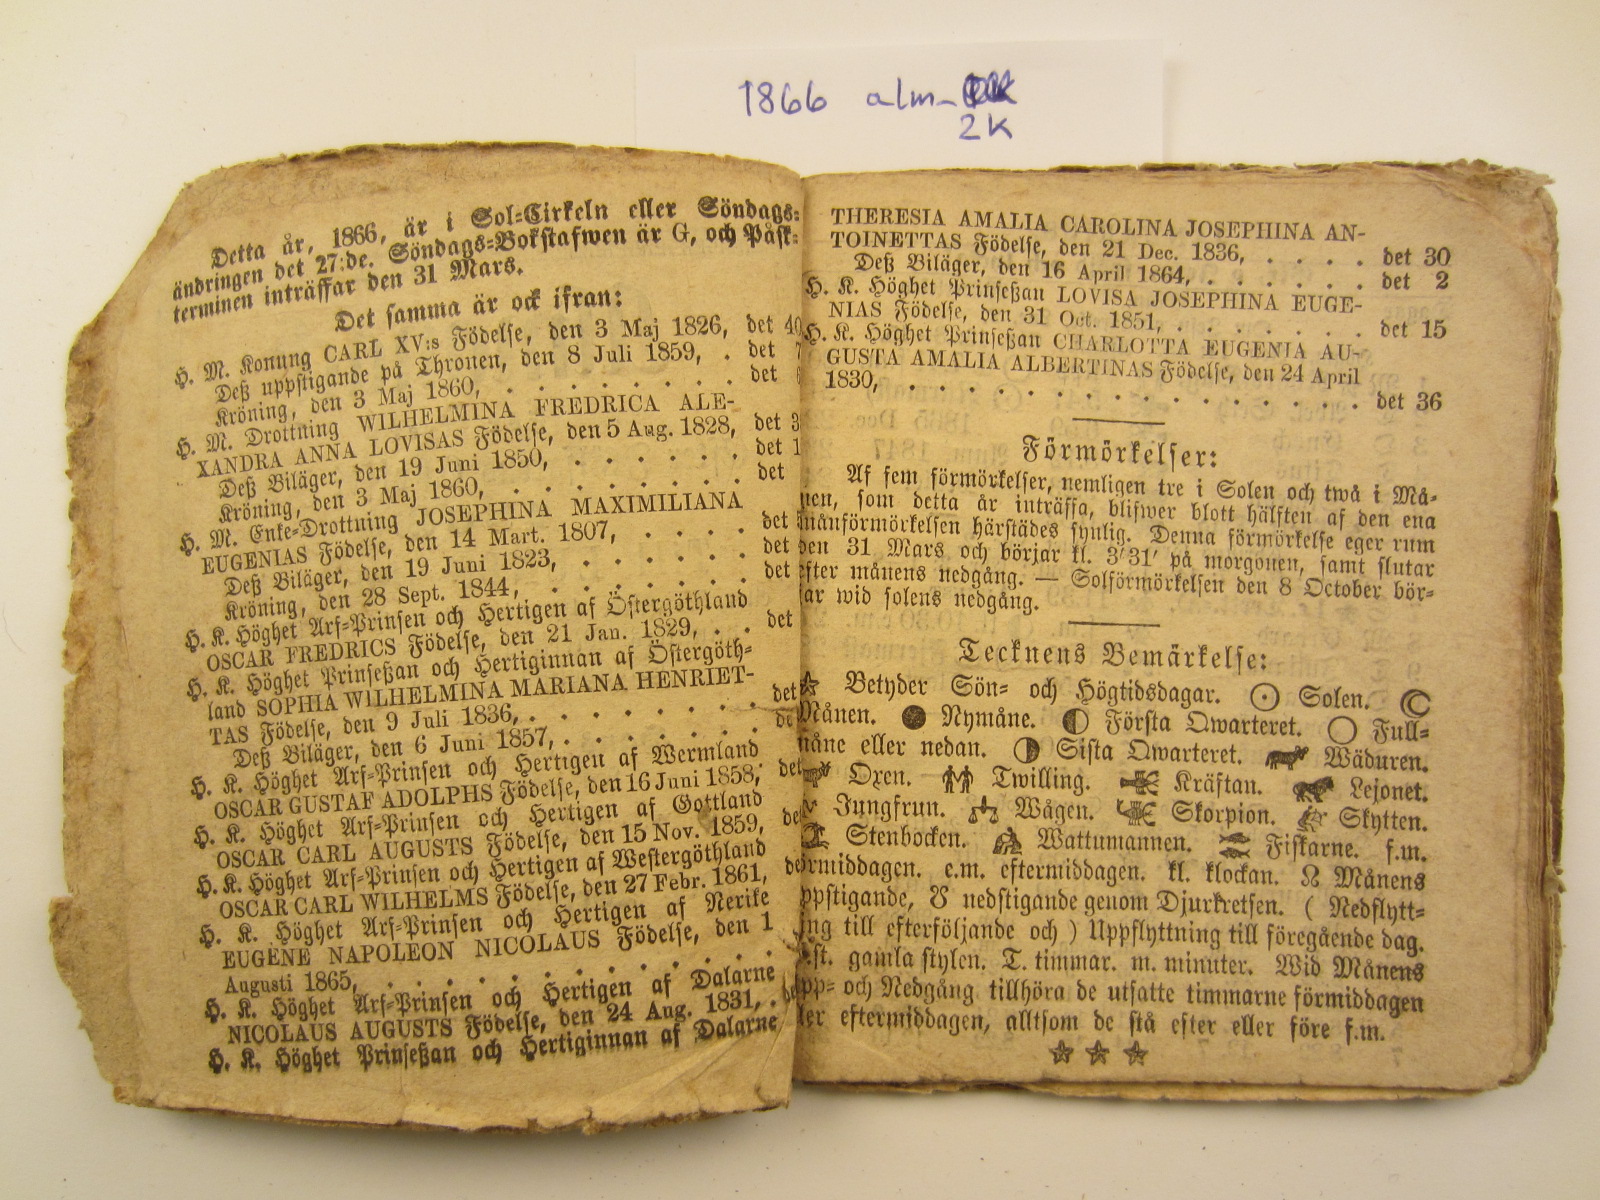 1866 alm-
2K
Detta år, 1866, är i Sol=Cirkeln eller Söndags=
ändringen det 27:de. Söndags=Bokstafwen är G, och Påsk=
terminen inträffar den 31 Mars.
Det samma är ock ifrån:
H. M. Konung CARL XV:s Födelse, den 3 Maj 1826, det 40
Deß uppstigande på Thronen, den 8 Juli 1859, . det 7
Kröning, den 3 Maj 1860, . . . . . . . . . det
H. M. Drottning WILHELMINA FREDRICA ALE-
XANDRA ANNA LOVISAS Födelse, den 5 Aug. 1828, det 3
Deß Biläger, den 19 Juni 1850, . . . . . . det 1
Kröning, den 3 Maj 1860, . . . . . . . . . det
H. M. Enke=Drottning JOSEPHINA MAXIMILIANA
EUGENIAS Födelse, den 14 Mart. 1807, . . . . det
Deß Biläger, den 19 Juni 1823, . . . . . . det
Kröning, den 28 Sept. 1844, . . . . . . . det
H. K. Höghet Arf=Prinsen och Hertigen af Östergöthland
OSCAR FREDRICS Födelse, den 21 Jan. 1829, . . det
H. K. Höghet Prinseßan och Hertiginnan af Östergöth=
land SOPHIA WILHELMINA MARIANA HENRIET-
TAS Födelse, den 9 Juli 1836, . . . . . . . det
Deß Biläger, den 6 Juni 1857, . . . . . . de
H. K. Höghet Arf=Prinsen och Hertigen af Wermland
OSCAR GUSTAF ADOLPHS Födelse, den 16 Juni 1858, det
H. K. Höghet Arf=Prinsen och Hertigen af Gottland
OSCAR CARL AUGUSTS Födelse, den 15 Nov. 1859, de
H. K. Höghet Arf=Prinsen och Hertigen af Westergöthland
OSCAR CARL WILHELMS Födelse, den 27 Febr. 1861, de
H. K. Höghet Arf=Prinsen och Hertigen af Nerike
EUGÈNE NAPOLEON NICOLAUS Födelse, den 1
Augusti 1865, . . . . . . . . . . . .
H. K. Höghet Arf=Prinsen och Hertigen af Dalarne
NICOLAUS AUGUSTS Födelse, den 24 Aug. 1831, . de
H. K. Höghet Prinseßan och Hertiginnan af Dalarne
THERESIA AMALIA CAROLINA JOSEPHINA AN-
TOINETTAS Födelse, den 21 Dec. 1836, . . . . . det 30
Deß Biläger, den 16 April 1864, . . . . . . . det 2
H. K. Höghet Prinseßan LOVISA JOSEPHINA EUGE-
NIAS Födelse, den 31 Oct. 1851, . . . . . . . . det 15
H. K. Höghet Prinseßan CHARLOTTA EUGENIA AU-
GUSTA AMALIA ALBERTINAS Födelse, den 24 April
1830, . . . . . . . . . . . . . . . . . . det 36
Förmörkelser:
Af fem förmörkelser, nemligen tre i Solen och twå i Må=
nen, som detta år inträffa, blifwer blott hälften af den ena
månförmörkelsen härstädes synlig. Denna förmörkelse eger rum
den 31 Mars och börjar kl. 3' 31' på morgonen, samt slutar
efter månens nedgång. — Solförmörkelsen den 8 October bör=
jar wid solens nedgång.
Tecknens Bemärkelse:
☆ Betyder Sön= och Högtidsdagar. ☉ Solen. ☾
Månen. ● Nymåne. ◐ Första Qwarteret. ○ Full=
måne eller nedan. ◑ Sista Qwarteret. Wäduren.
Oxen. Twilling. Kräftan. Lejonet.
Jungfrun. Wågen. Skorpion. Skytten.
Stenbocken. Wattumannen. Fiskarne. f.m.
förmiddagen. e.m. eftermiddagen. kl. klockan. ☊ Månens
uppstigande, ☋ nedstigande genom Djurkretsen. ( Nedflytt=
ning till efterföljande och ) Uppflyttning till föregående dag.
st. gamla stylen. T. timmar. m. minuter. Wid Månens
Upp= och Nedgång tillhöra de utsatte timmarne förmiddagen
eller eftermiddagen, alltsom de stå efter eller före f.m.
☆ ☆ ☆